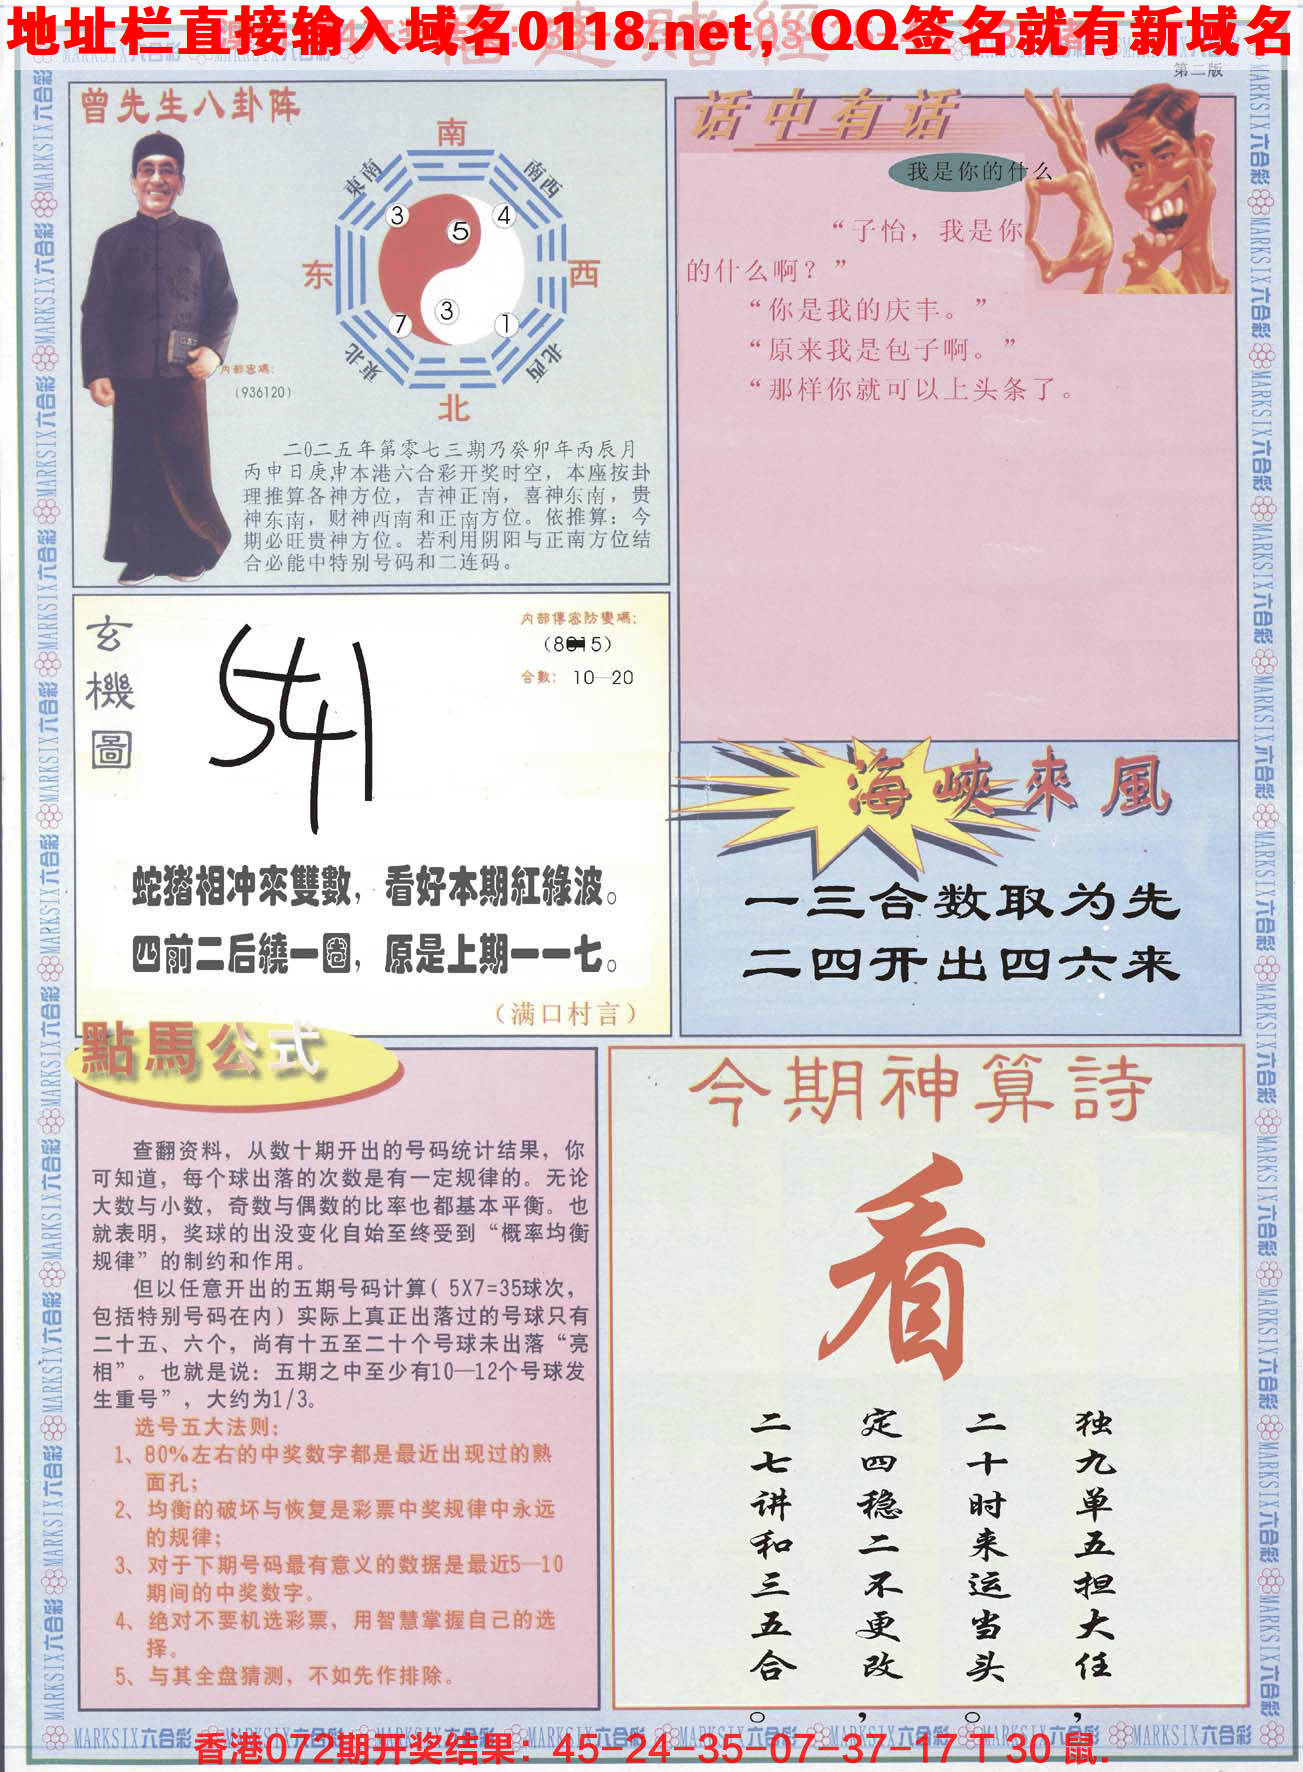 地址栏直接输入域名0118.net，QQ签名就有新域名
第二版
曾先生八卦阵
南
東南
南西
3
4
5
东
西
3
7
1
東北
北西
北
内部密碼：
（936120）
二0二五年第零七三期乃癸卯年丙辰月
丙申日庚申本港六合彩开奖时空，本座按卦
理推算各神方位，吉神正南，喜神东南，贵
神东南，财神西南和正南方位。依推算：今
期必旺贵神方位。若利用阴阳与正南方位结
合必能中特别号码和二连码。
话中有话
我是你的什么
“子怡，我是你
的什么啊？”
“你是我的庆丰。”
“原来我是包子啊。”
“那样你就可以上头条了。
玄機圖
内部傳密防變碼：
合數：10—20
541
蛇猪相冲來雙數，看好本期紅綠波。
四前二后繞一圈，原是上期一一七。
（满口村言）
海峽來風
一三合数取为先
二四开出四六来
點馬公式
查翻资料，从数十期开出的号码统计结果，你
可知道，每个球出落的次数是有一定规律的。无论
大数与小数，奇数与偶数的比率也都基本平衡。也
就表明，奖球的出没变化自始至终受到“概率均衡
规律”的制约和作用。
但以任意开出的五期号码计算（5X7=35球次，
包括特别号码在内）实际上真正出落过的号球只有
二十五、六个，尚有十五至二十个号球未出落“亮
相”。也就是说：五期之中至少有10—12个号球发
生重号”，大约为1/3。
选号五大法则：
1、80%左右的中奖数字都是最近出现过的熟
面孔；
2、均衡的破坏与恢复是彩票中奖规律中永远
的规律；
3、对于下期号码最有意义的数据是最近5—10
期间的中奖数字。
4、绝对不要机选彩票，用智慧掌握自己的选
择。
5、与其全盘猜测，不如先作排除。
今期神算詩
看
独九单五担大任，
二十时来运当头。
定四稳二不更改，
二七讲和三五合。
MARKSIX六合彩
香港072期开奖结果：45-24-35-07-37-17 T 30 鼠.